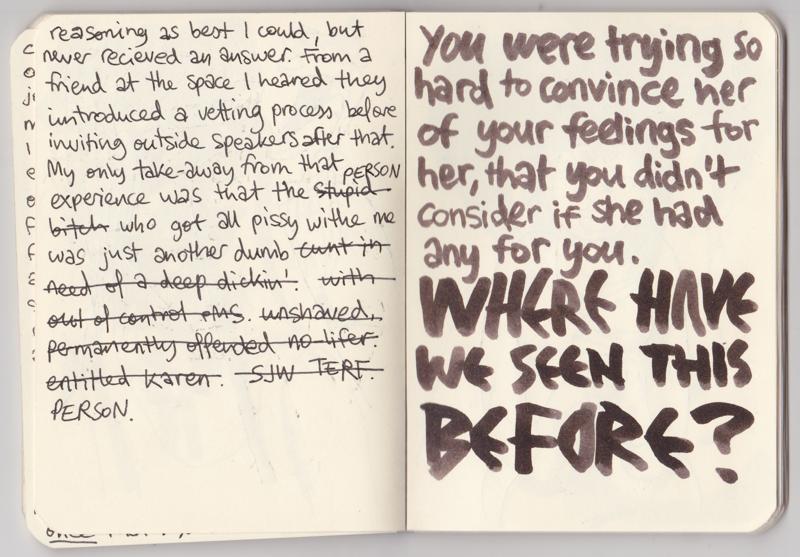 reasoning as best I could, but
never recieved an answer. From a
friend at the space I heared they
introduced a vetting process before
inviting outside speakers after that.
My only take-away from that PERSON
experience was that the stupid
bitch who got all pissy withe me
was just another dumb cunt in
need of a deep dickin'. with
out of control PMS. unshaved,
permanently offended no-lifer.
entitled Karen. SJW TERF.
PERSON.
once
You were trying so
hard to convince her
of your feelings for
her, that you didn't
consider if she had
any for you.
WHERE HAVE
WE SEEN THIS
BEFORE?